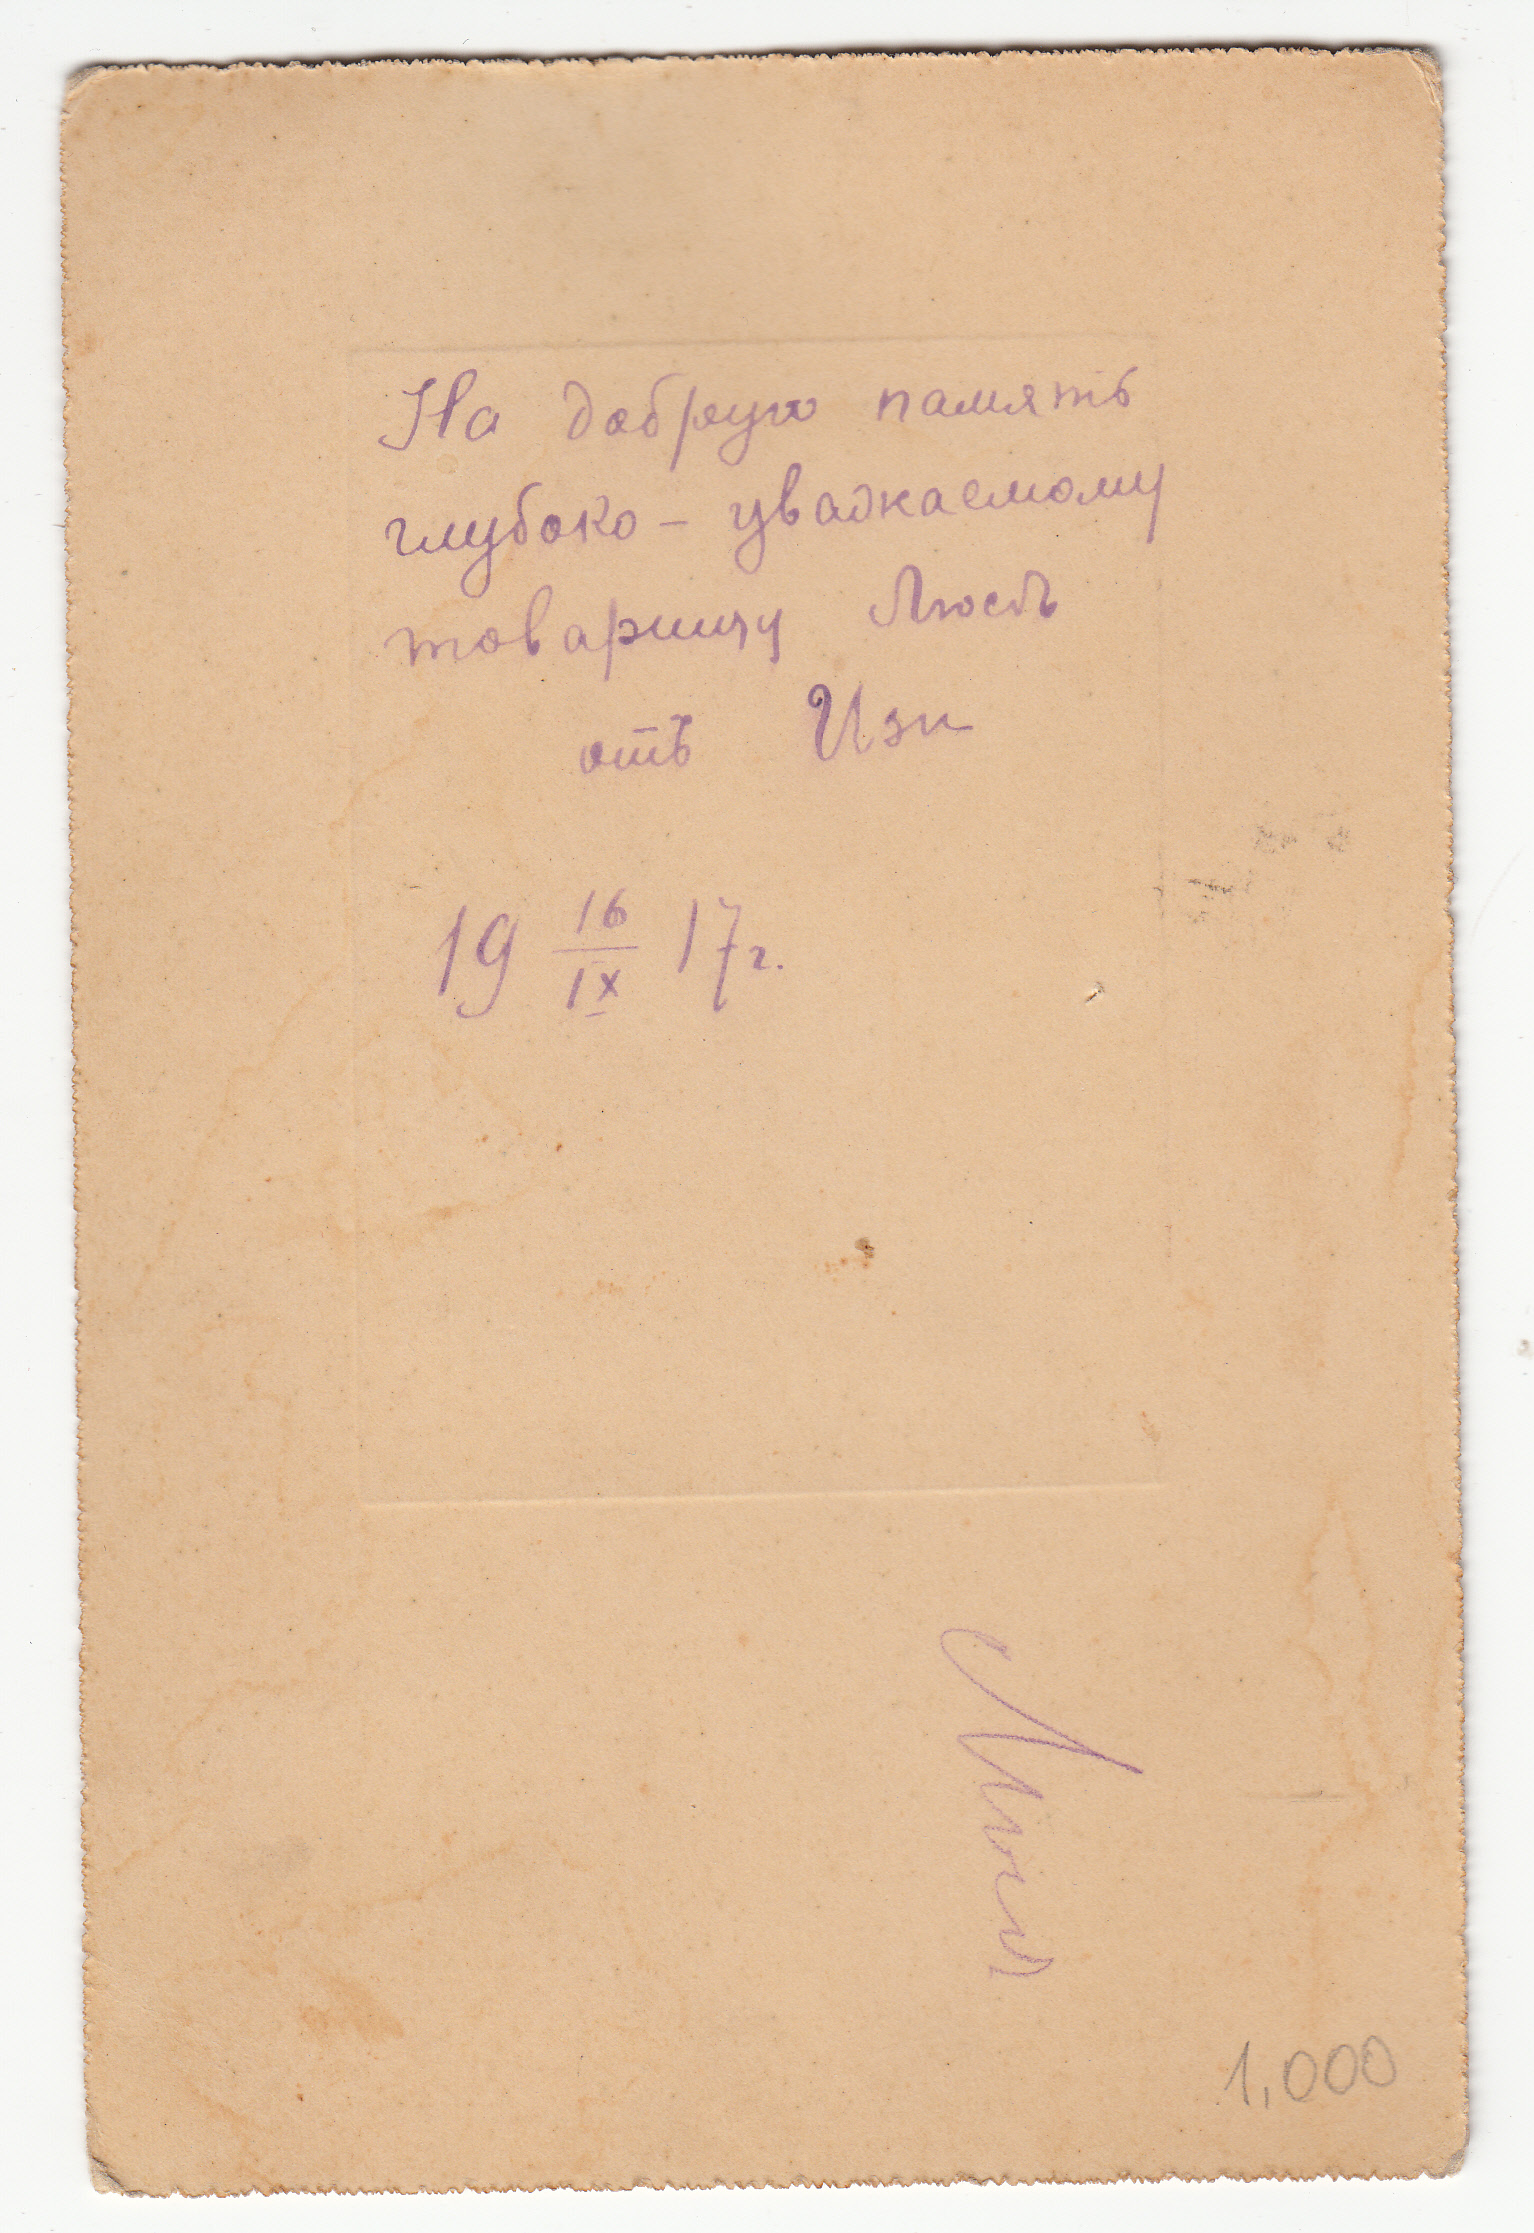 На добрую память
глубоко - уважаемому
товарищу Люсѣ
отъ Изи
19 16/IX 17 г.
Люся
1,000